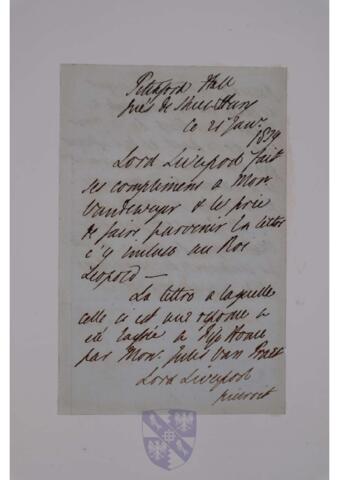 Pitchford Hall
près de Shrewsbury
ce 21 Janv. 1839
Lord Liverpool fait
ses complimens a Mon.
Vandeweyer & le prie
de faire parvenir la lettre
c'y incluse au Roi
Leopold —
La lettre a laquelle
celle ci est une reponse a
été laissée a Fife House
par Mon. Jules Van Praet
Lord Liverpool